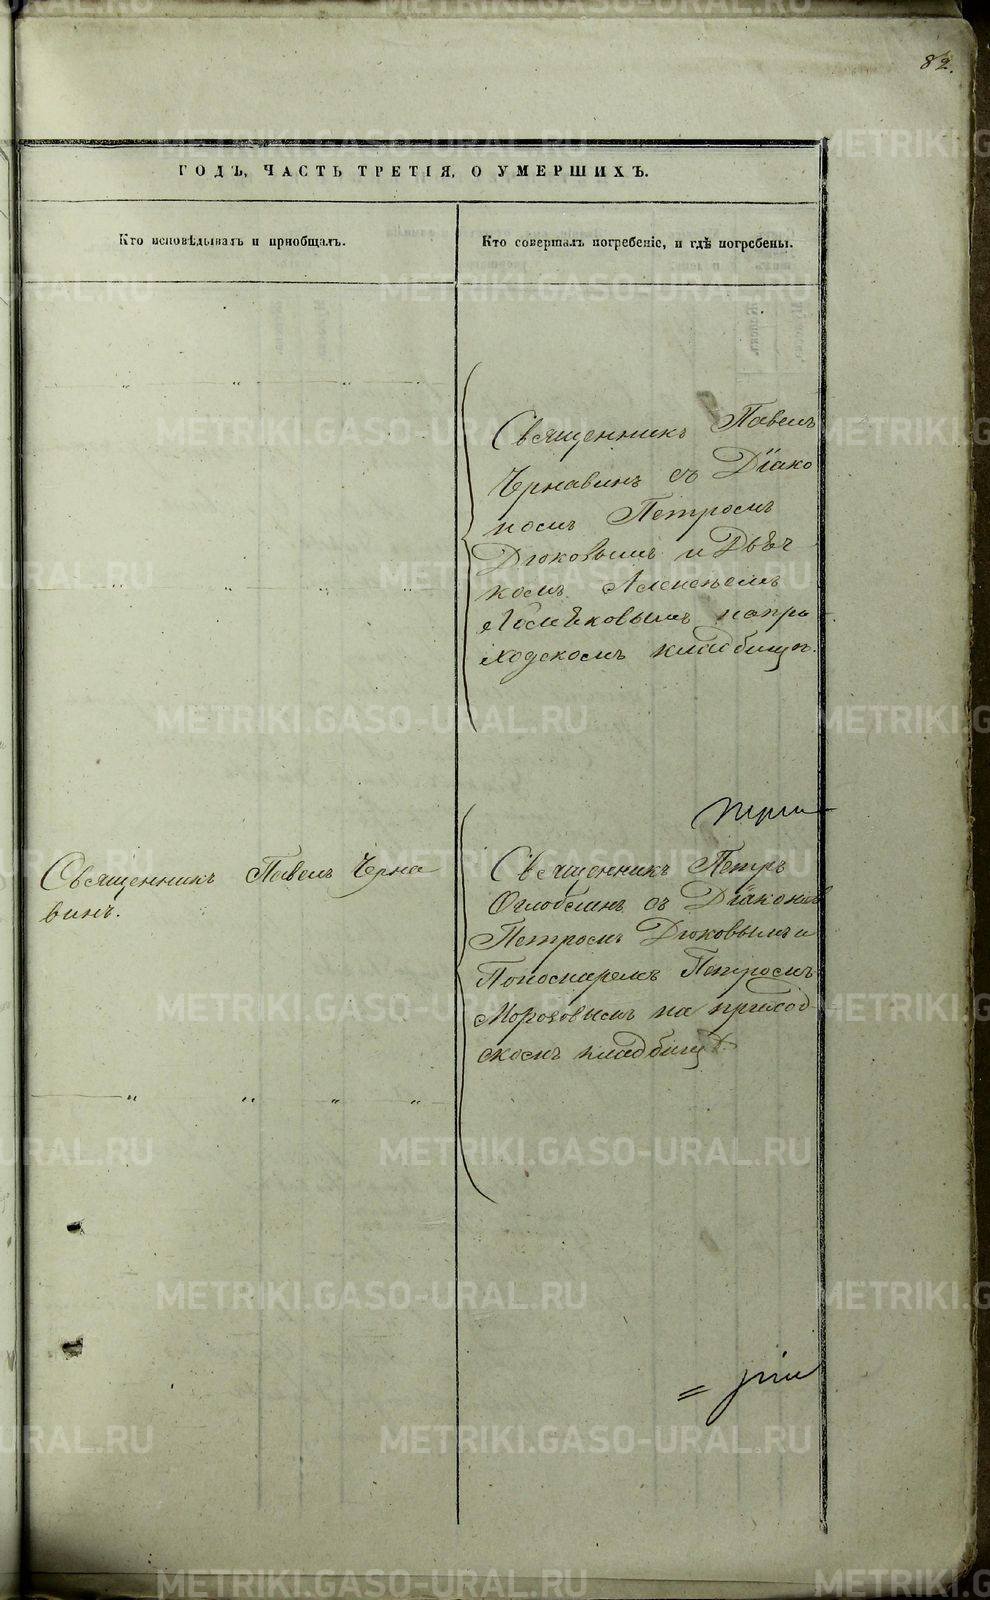 82.
ГОДЪ, ЧАСТЬ ТРЕТІЯ, О УМЕРШИХЪ.
Кто исповѣдывалъ и пріобщалъ.
Кто совершалъ погребеніе, и гдѣ погребены.
Священникъ Павелъ
Чернавинъ съ Діако
номъ Петромъ
Дюковымъ и Дьяч
комъ Алексѣемъ
напри
ходскомъ кладбищѣ.
Священникъ Павелъ Черна
винъ.
Священникъ Петръ
Оглоблинъ съ Діакономъ
Петромъ Дюковымъ и
Пономаремъ Петромъ
Морозовымъ на приход
скомъ кладбищѣ.
METRIKI.GASO-URAL.RU